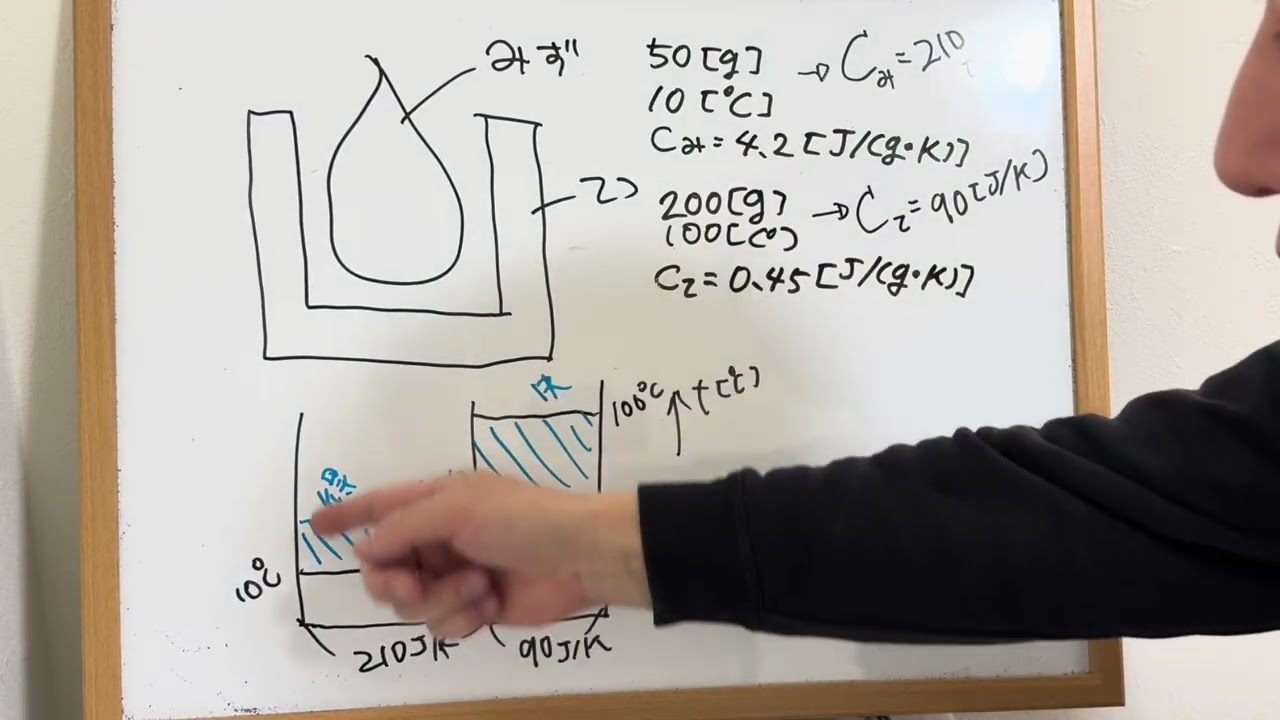 みず
50[g] → Cみ=210
10[℃]
Cみ=4.2[J/(g・K)]
200[g] → Cて=90[J/K]
100[C°]
Cて=0.45[J/(g・K)]
てつ
100℃ ↑t[℃]
10℃
210J/K
90J/K